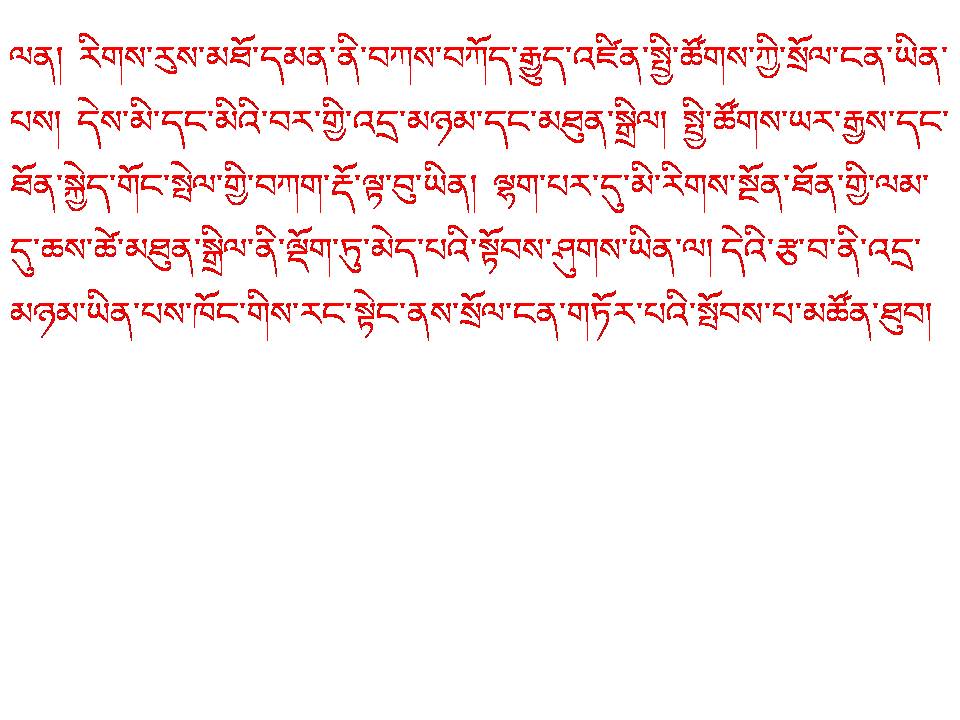 ལན། རིགས་རུས་མཐོ་དམན་ནི་བཀས་བཀོད་རྒྱུད་འཛིན་སྤྱི་ཚོགས་ཀྱི་སྲོལ་ངན་ཡིན་
པས། དེས་མི་དང་མིའི་བར་གྱི་འདྲ་མཉམ་དང་མཐུན་སྒྲིལ། སྤྱི་ཚོགས་ཡར་རྒྱས་དང་
ཐོན་སྐྱེད་གོང་སྤེལ་གྱི་བཀག་རྡོ་ལྟ་བུ་ཡིན། ལྷག་པར་དུ་མི་རིགས་སྔོན་ཐོན་གྱི་ལམ་
དུ་ཆས་ཚེ་མཐུན་སྒྲིལ་ནི་ལྡོག་ཏུ་མེད་པའི་སྟོབས་ཤུགས་ཡིན་ལ། དེའི་རྩ་བ་ནི་འདྲ་
མཉམ་ཡིན་པས་ཁོང་གིས་རང་སྟེང་ནས་སྲོལ་ངན་གཏོར་པའི་སྤོབས་པ་མཚོན་ཐུབ།